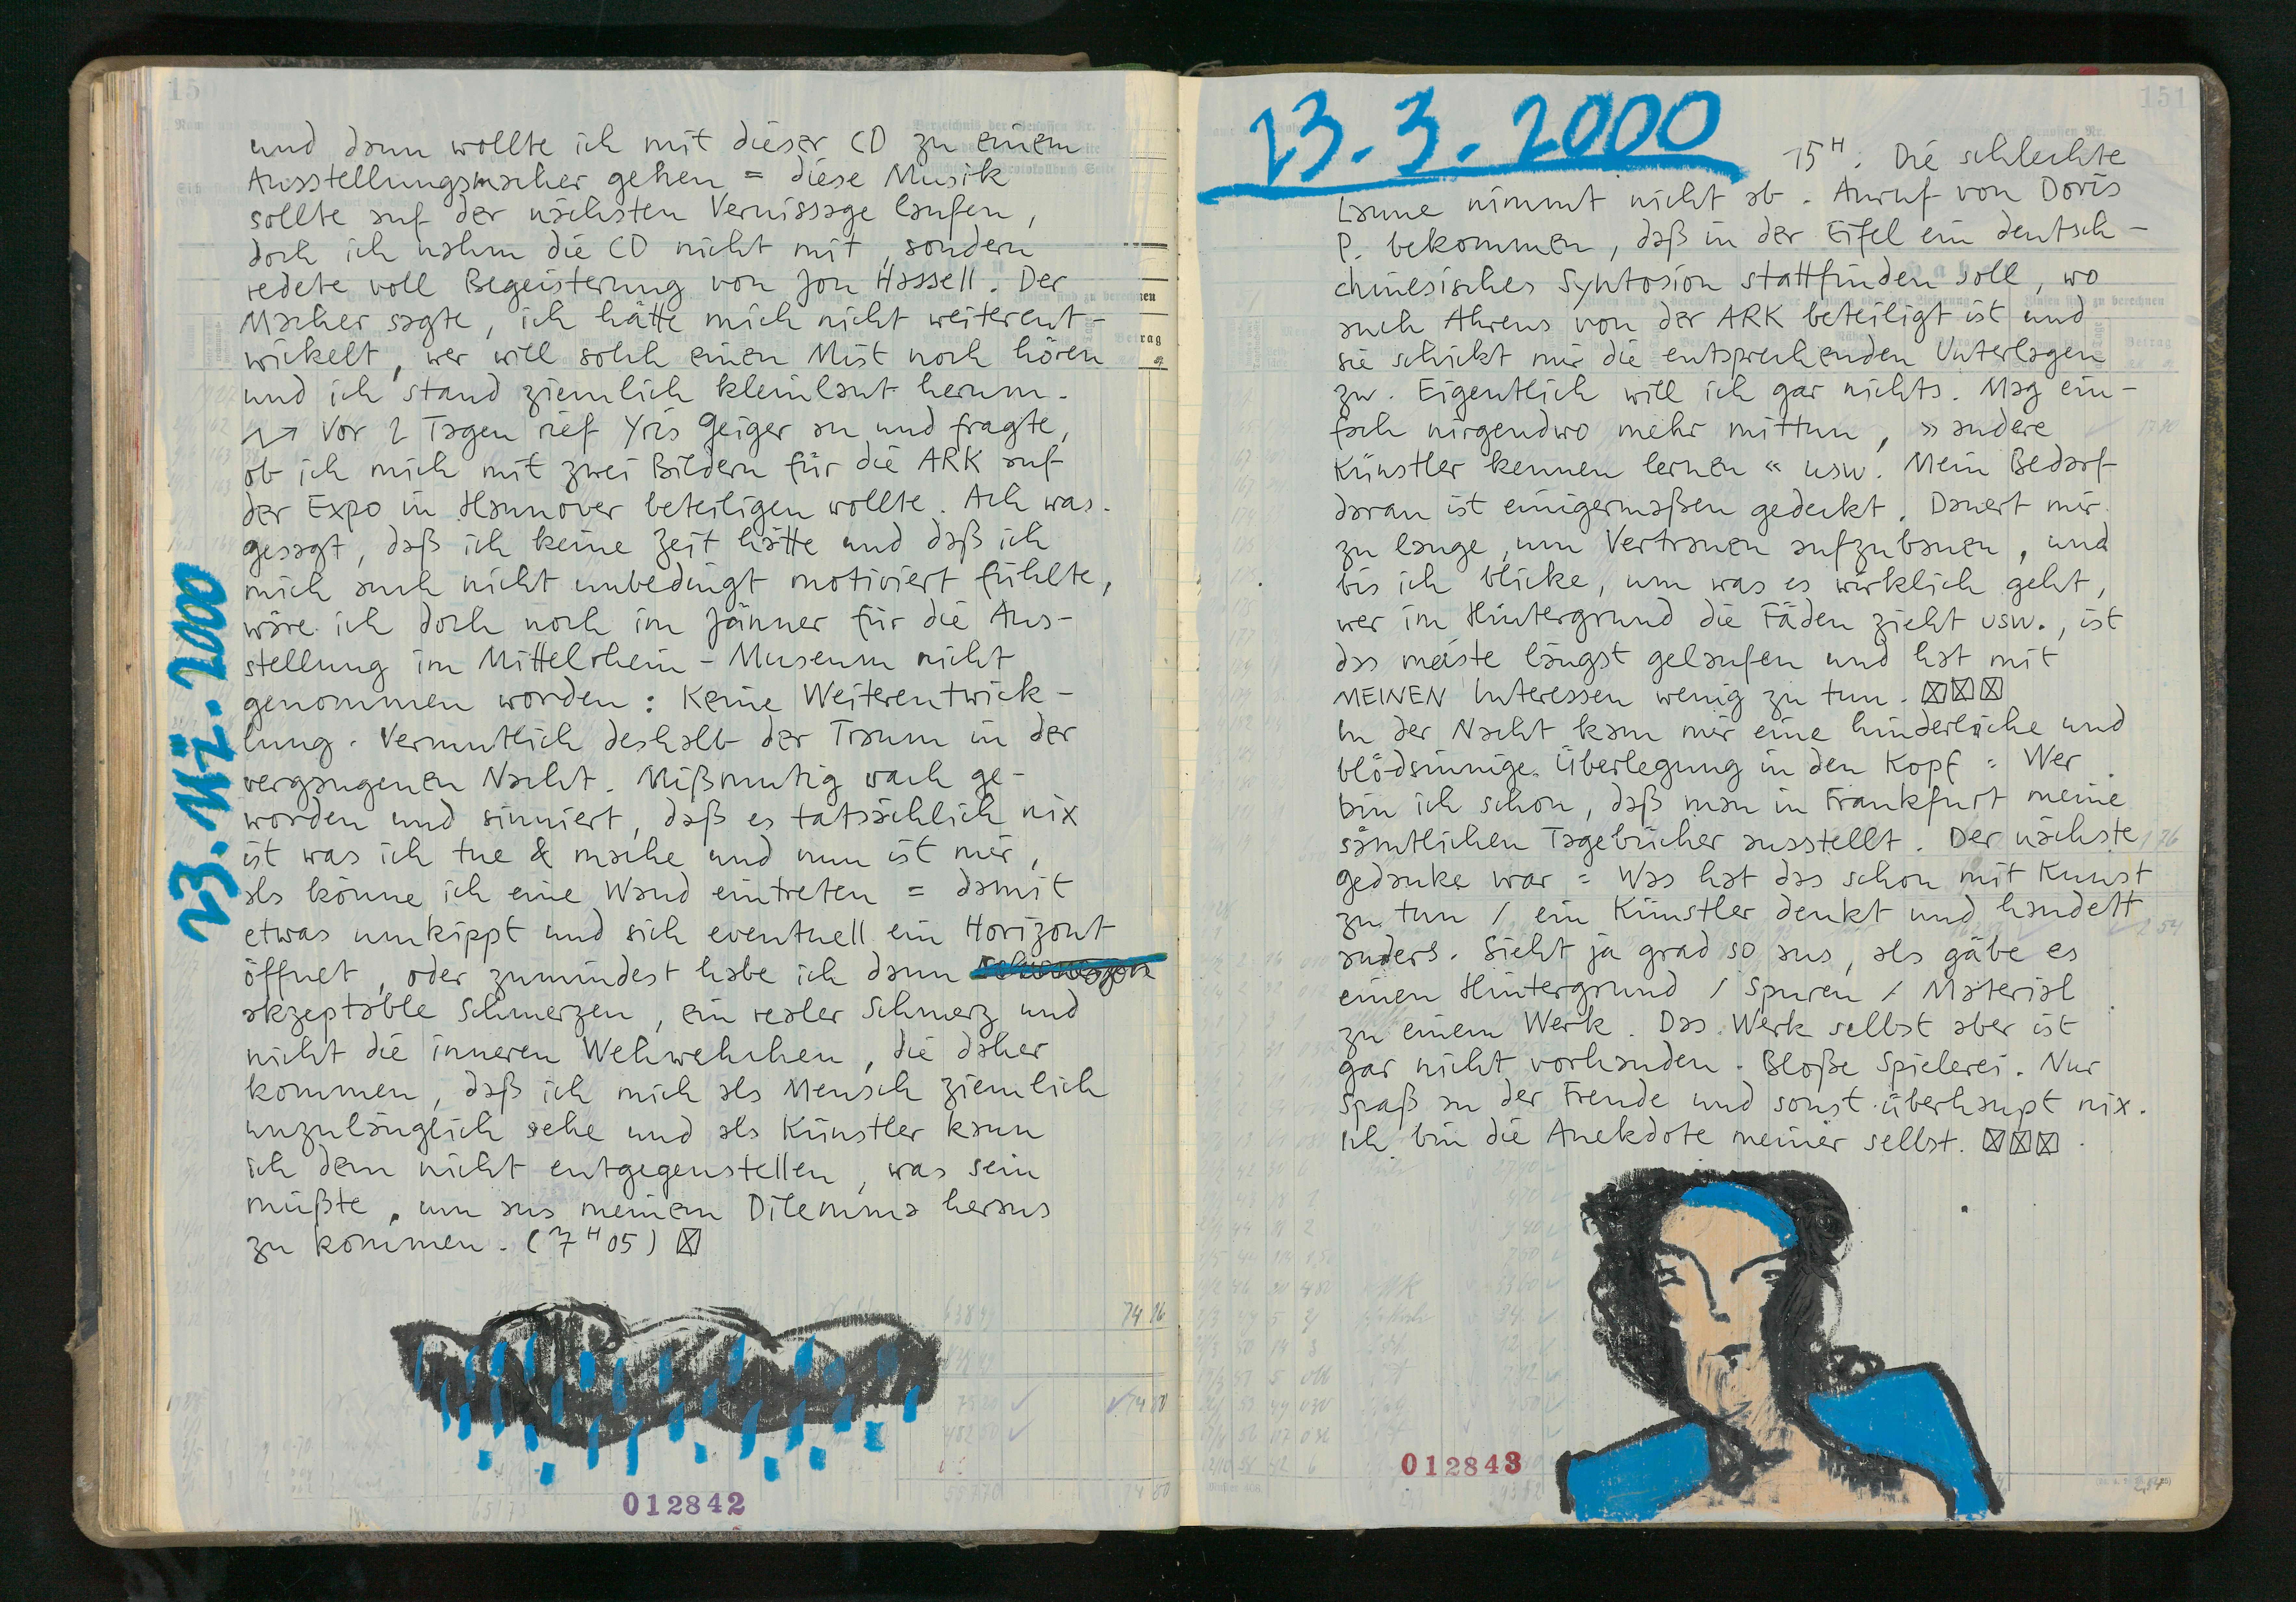 und dann wollte ich mit dieser CD zu einem
Ausstellungsmacher gehen = diese Musik
sollte auf der nächsten Vernissage laufen,
doch ich nahm die CD nicht mit, sondern
redete voll Begeisterung von Jon Hassell. Der
Macher sagte, ich hätte mich nicht weiterent-
wickelt, wer will solch einen Mist noch hören
und ich stand ziemlich kleinlaut herum.
Vor 2 Tagen rief Yris Geiger an und fragte,
ob ich mich mit zwei Bildern für die ARK auf
der Expo in Hannover beteiligen wollte. Ach was.
gesagt, daß ich keine Zeit hätte und daß ich
mich auch nicht unbedingt motiviert fühlte,
wäre ich doch noch im Jänner für die Aus-
stellung im Mittelrhein-Museum nicht
genommen worden: Keine Weiterentwick-
lung. Vermutlich deshalb der Traum in der
vergangenen Nacht. Mißmutig wach ge-
worden und sinniert, daß es tatsächlich nix
ist was ich tue & mache und nun ist mir,
als könne ich eine Wand eintreten = damit
etwas umkippt und sich eventuell ein Horizont
öffnet, oder zumindest habe ich dann
akzeptable Schmerzen, ein realer Schmerz und
nicht die inneren Wehwehchen, die daher
kommen, daß ich mich als Mensch ziemlich
unzulänglich sehe und als Künstler kann
ich dem nicht entgegenstellen, was sein
müßte, um aus meinem Dilemma heraus
zu kommen. (7 H 05) ☒
23. MZ. 2000
012842
23. 3. 2000
15 H. Die schlechte
Laune nimmt nicht ab. Anruf von Doris
P. bekommen, daß in der Eifel ein deutsch-
chinesisches Symposion stattfinden soll, wo
auch Ahrens von der ARK beteiligt ist und
sie schickt mir die entsprechenden Unterlagen
zu. Eigentlich will ich gar nichts. Mag ein-
fach nirgendwo mehr mittun, »andere
Künstler kennen lernen« usw. Mein Bedarf
daran ist einigermaßen gedeckt. Dauert mir
zu lange, um Vertrauen aufzubauen, und
bis ich blicke, um was es wirklich geht,
wer im Hintergrund die Fäden zieht usw., ist
das meiste längst gelaufen und hat mit
MEINEN Interessen wenig zu tun. ☒☒☒
In der Nacht kam mir eine hinderliche und
blödsinnige Überlegung in den Kopf = Wer
bin ich schon, daß man in Frankfurt meine
sämtlichen Tagebücher ausstellt. Der nächste
gedanke war = Was hat das schon mit Kunst
zu tun / ein Künstler denkt und handelt
anders. Sieht ja grad so aus, als gäbe es
einen Hintergrund / Spuren / Material
zu einem Werk. Das Werk selbst aber ist
gar nicht vorhanden. Bloße Spielerei. Nur
Spaß an der Freude und sonst überhaupt nix.
Ich bin die Anekdote meiner selbst. ☒☒☒
012843
151